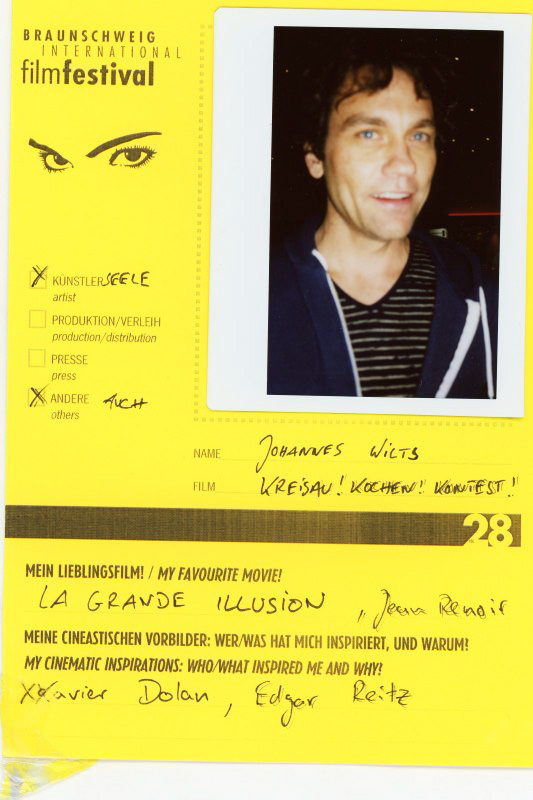 BRAUNSCHWEIG
INTERNATIONAL
filmfestival
KÜNSTLERSEELE
artist
PRODUKTION/VERLEIH
production/distribution
PRESSE
press
ANDERE AUCH
others
NAME JOHANNES WILTS
FILM KREISAU! KOCHEN! KONTEST!
28
MEIN LIEBLINGSFILM! / MY FAVOURITE MOVIE!
LA GRANDE ILLUSION, Jean Renoir
MEINE CINEASTISCHEN VORBILDER: WER/WAS HAT MICH INSPIRIERT, UND WARUM?
MY CINEMATIC INSPIRATIONS: WHO/WHAT INSPIRED ME AND WHY?
Xavier Dolan, Edgar Reitz